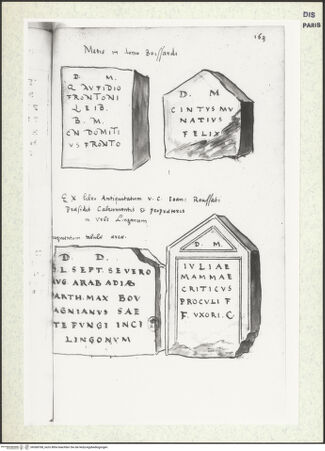 DIS
PARIS
163
Metis in domo Boissardi
D. M.
Q AVFIDIO
FRONTONI
LEIB.
B. M.
CN DOMITI
VS FRONTO
D. M
CINTVS MV
NATIVS
FELIX
Ex libro Antiquitatum V. C. Ioannis
Praesidis
in Urbe Lingonum
fragmentum tabulae
D. D.
S. L. SEPT. SEVERO
VG. ARAB ADIAB
PARTH. MAX BOV
AGNIANVS SAE
TE FVNGI INCI
LINGONVM
D. M.
IVLIAE
MAMMAE
CRITICVS
PROCVLI F
F. VXORI. C.